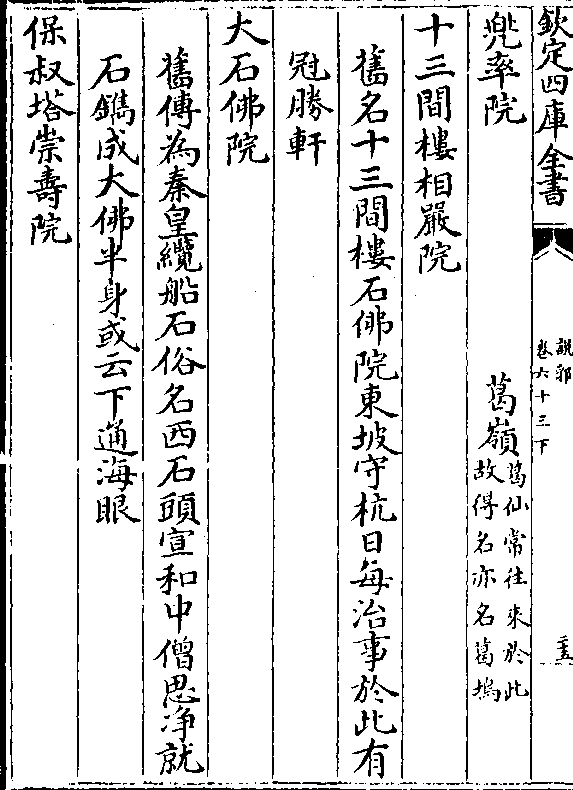 欽定四庫全書
說郛
卷六十三下
二五
兜率院
葛嶺
葛仙常往來於此
故得名亦名葛塢
十三間樓相嚴院
舊名十三間樓石佛院東坡守杭日每治事於此有
冠勝軒
大石佛院
舊傳為秦皇纜船石俗名西石頭宣和中僧思净就
石鐫成大佛半身或云下通海眼
保叔塔崇壽院